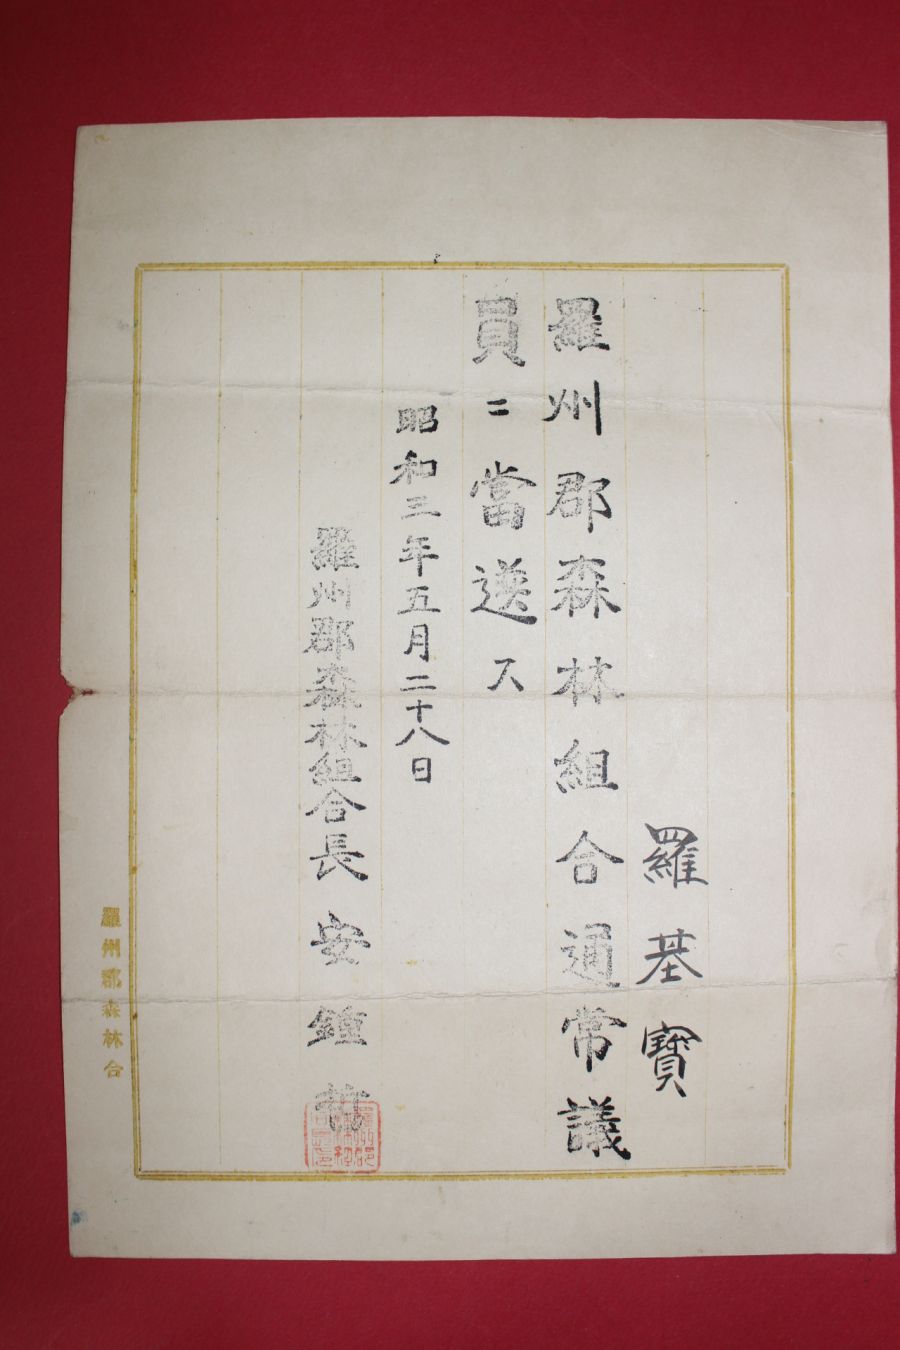 羅基寶
羅州郡森林組合通常議
員ニ當選ス
昭和三年五月二十八日
羅州郡森林組合長 安鍾
羅州郡森林